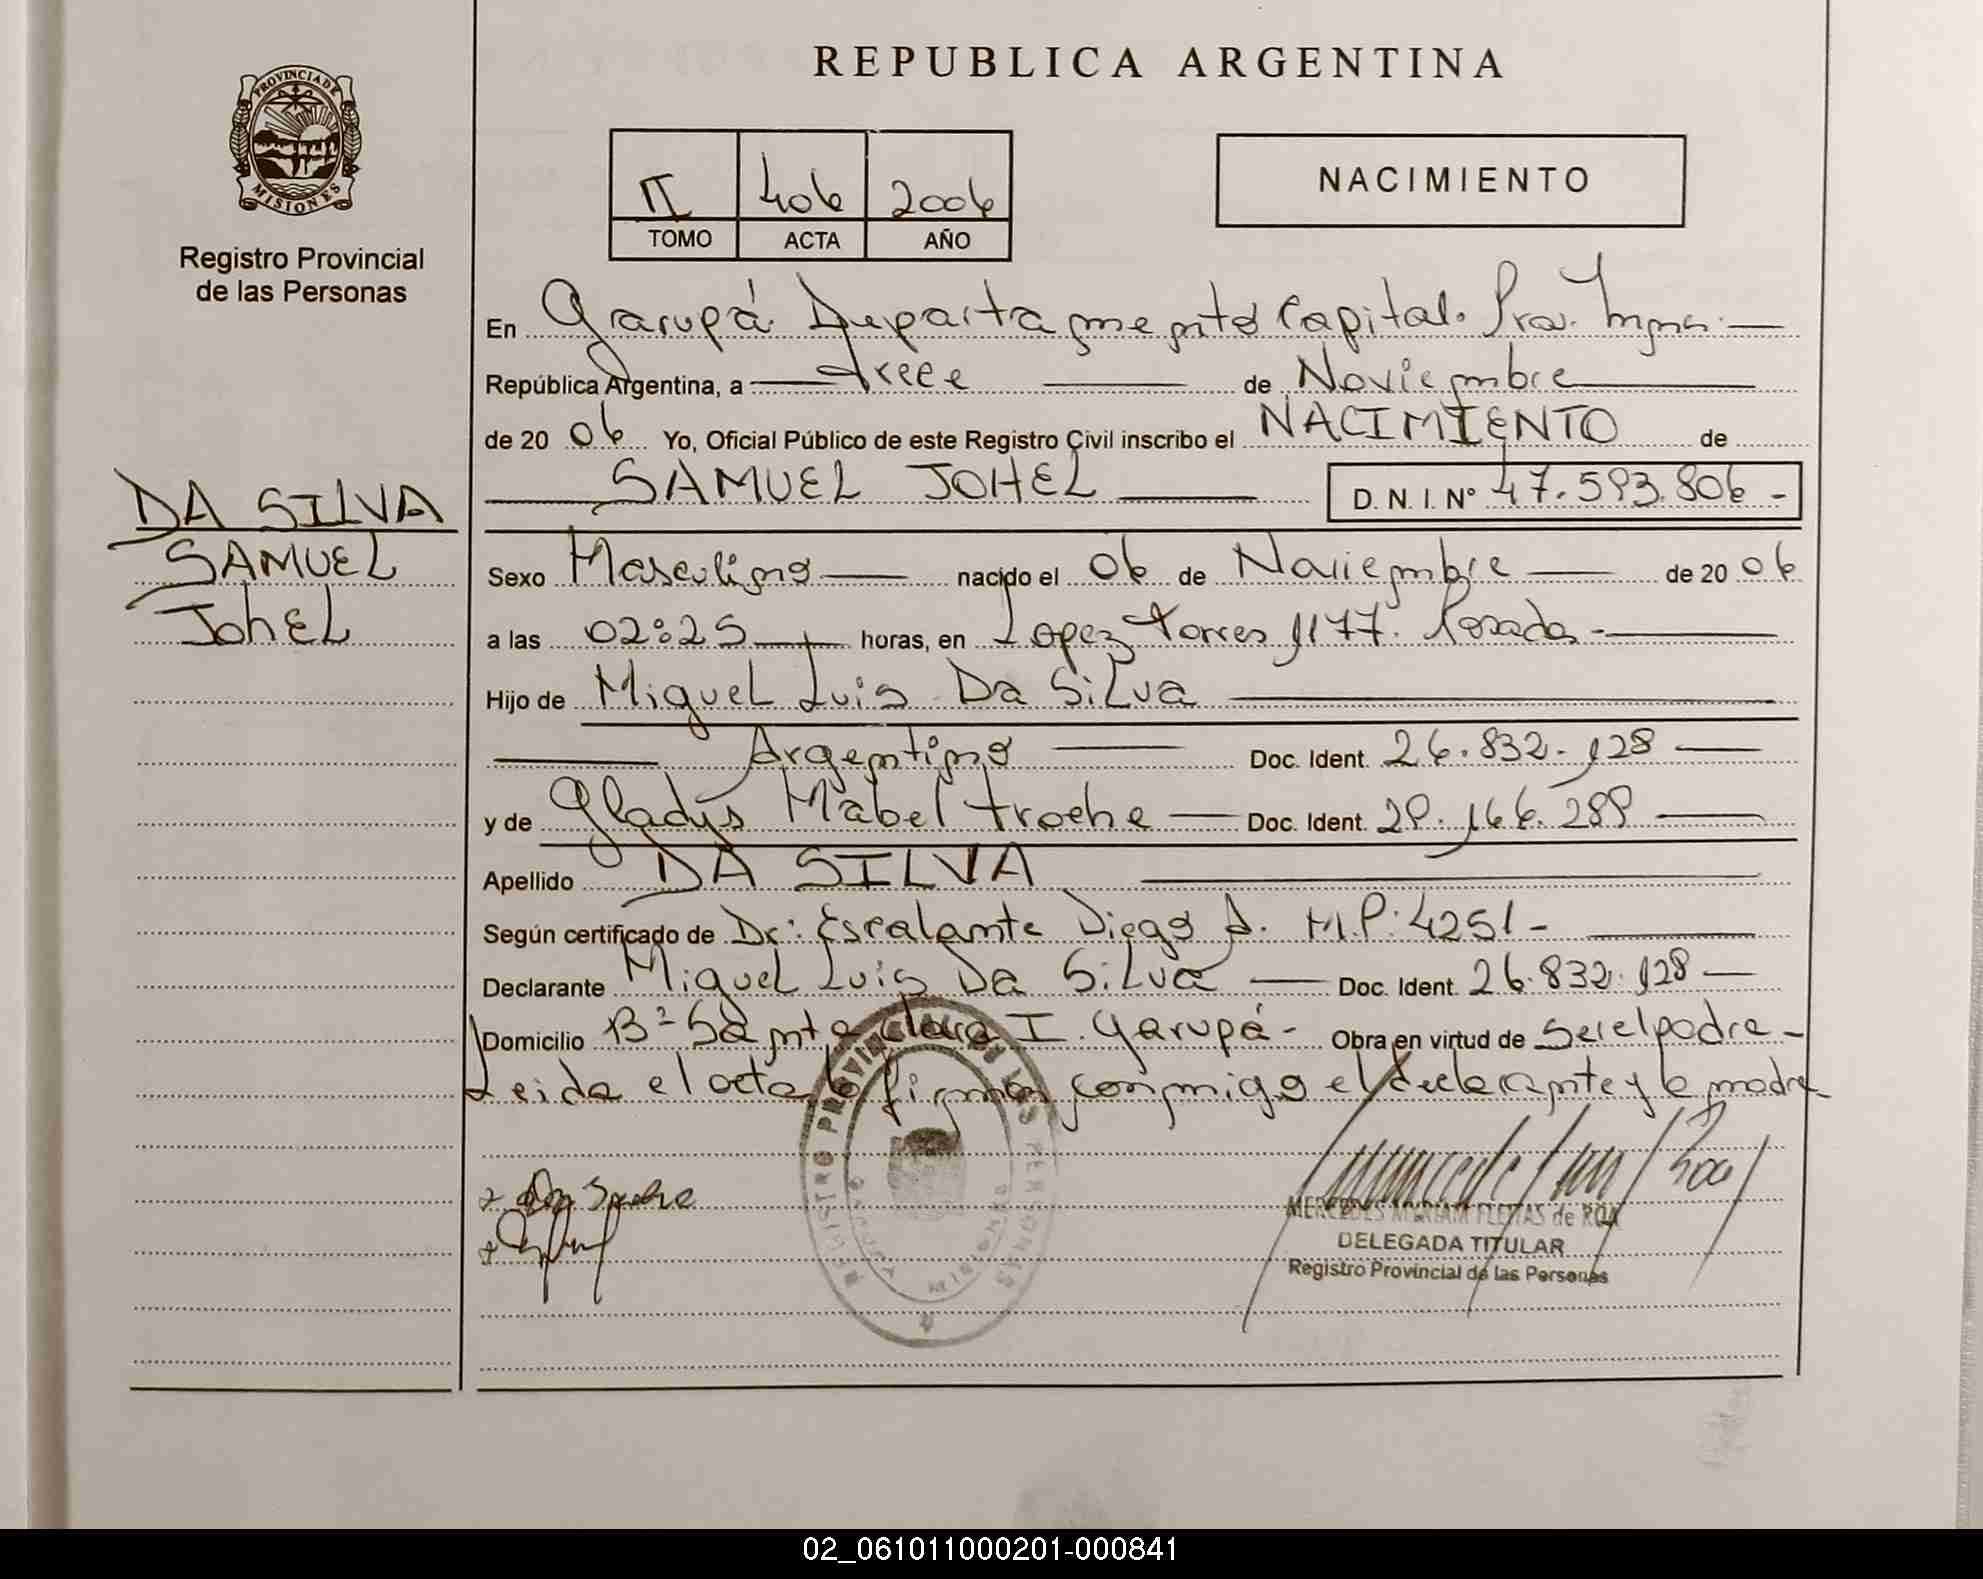 REPUBLICA ARGENTINA
PROVINCIA DE MISIONES
Registro Provincial
de las Personas
II 406 2006
TOMO ACTA AÑO
NACIMIENTO
En Garupá Departamento Capital. Prov. Mnes.
República Argentina, a trece de Noviembre
de 20 06 Yo, Oficial Público de este Registro Civil inscribo el NACIMIENTO de
SAMUEL JOHEL D. N. I. N° 47.593.806
DA SILVA
SAMUEL
JohEL
Sexo Masculino nacido el 06 de Noviembre de 20 06
a las 02:25 horas, en Lopez Torres 1177. Posadas
Hijo de Miguel Luis Da Silva
Argentino Doc. Ident. 26.832.128
y de Gladys Mabel Troche Doc. Ident. 29.166.289
Apellido DA SILVA
Según certificado de Dr: Escalante Diego A. M.P: 4251-
Declarante Miguel Luis Da Silva Doc. Ident. 26.832.128
Domicilio B° Santa Clara I. Garupá- Obra en virtud de ser el padre-
Leida el acta la firman conmigo el declarante y la madre
REGISTRO PROVINCIAL DE LAS PERSONAS
MERCEDES MYRIAM FLEITAS de ROA
DELEGADA TITULAR
Registro Provincial de las Personas
02_061011000201-000841